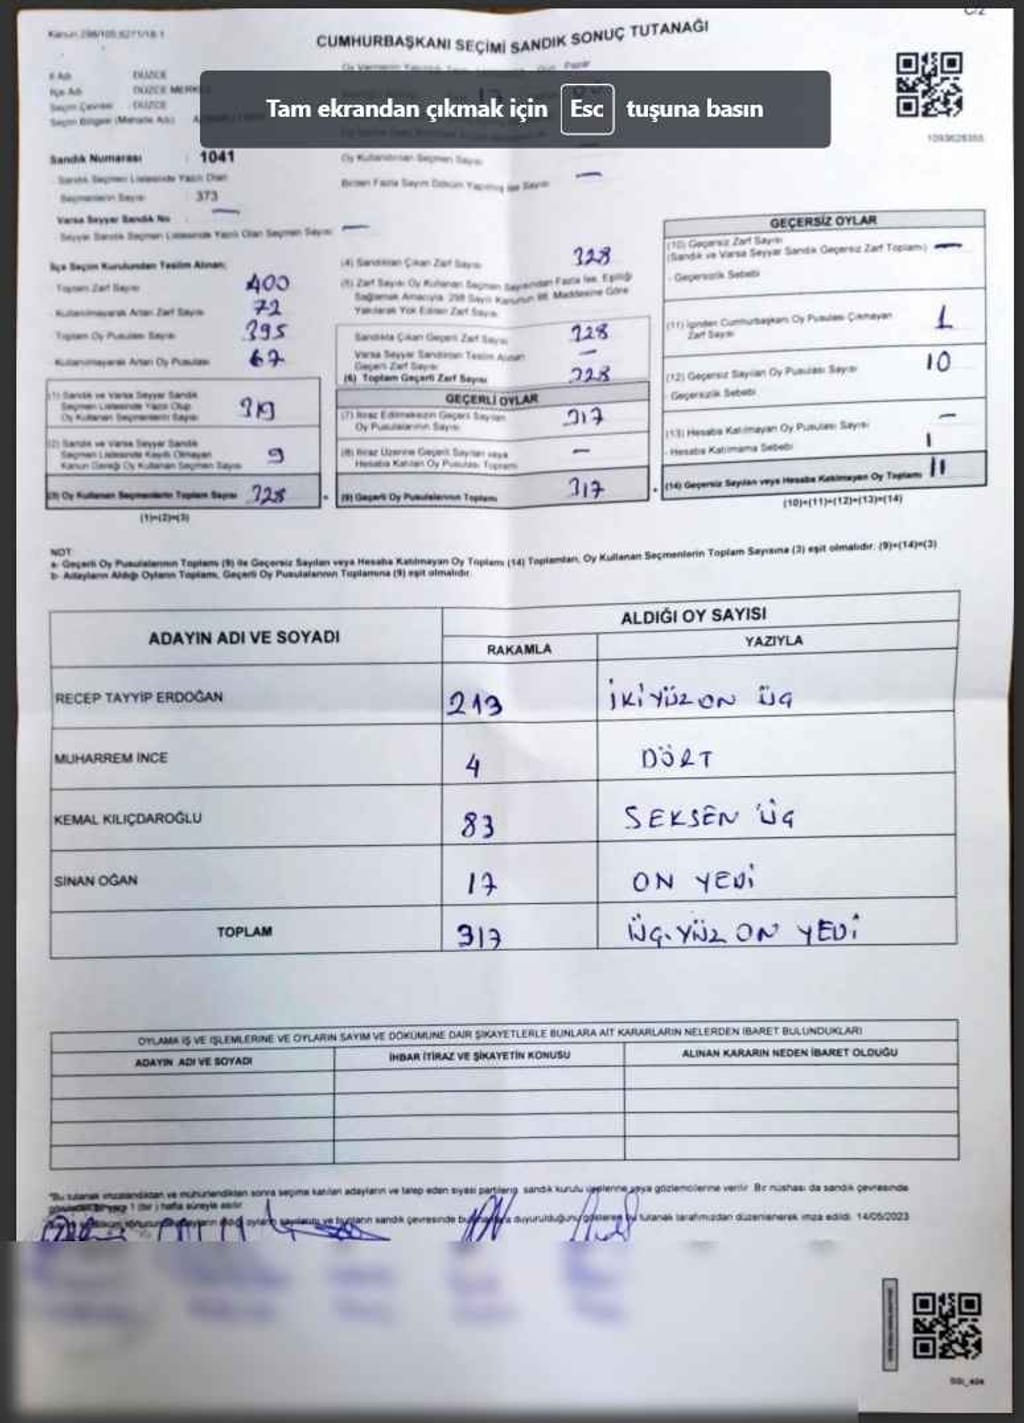 C/2
Kanun:298/105,6271/18-1
CUMHURBAŞKANI SEÇİMİ SANDIK SONUÇ TUTANAĞI
İl Adı DÜZCE
İlçe Adı DÜZCE MERKE
Seçim Çevresi : DÜZCE
Seçim Bölgesi (Mahalle Adı)
Pazar
Tam ekrandan çıkmak için Esc tuşuna basın
1093628355
Sandık Numarası : 1041
Sandık Seçmen Listesinde Yazılı Olan
Seçmenlerin Sayısı 373
Varsa Seyyar Sandık No —
Seyyar Sandık Seçmen Listesinde Yazılı Olan Seçmen Sayısı —
Oy Kullandırılan Seçmen Sayısı
Birden Fazla Sayım Döküm Yapılmış ise Sayısı —
İlçe Seçim Kurulundan Teslim Alınan:
Toplam Zarf Sayısı 400
Kullanılmayarak Artan Zarf Sayısı 72
Toplam Oy Pusulası Sayısı 395
Kullanılmayarak Artan Oy Pusulası 67
(1) Sandık ve Varsa Seyyar Sandık
Seçmen Listesinde Yazılı Olup
Oy Kullanan Seçmenlerin Sayısı 319
(2) Sandık ve Varsa Seyyar Sandık
Seçmen Listesinde Kayıtlı Olmayan
Kanun Gereği Oy Kullanan Seçmen Sayısı 9
(3) Oy Kullanan Seçmenlerin Toplam Sayısı 328
(1)+(2)=(3)
(4) Sandıktan Çıkan Zarf Sayısı 328
(5) Zarf Sayısı Oy Kullanan Seçmen Sayısından Fazla ise, Eşitliği
Sağlamak Amacıyla, 298 Sayılı Kanunun 98. Maddesine Göre
Yakılarak Yok Edilen Zarf Sayısı
Sandıkta Çıkan Geçerli Zarf Sayısı 328
Varsa Seyyar Sandıktan Teslim Alınan
Geçerli Zarf Sayısı —
(6) Toplam Geçerli Zarf Sayısı 328
GEÇERLİ OYLAR
(7) İtiraz Edilmeksizin Geçerli Sayılan
Oy Pusulalarının Sayısı 317
(8) İtiraz Üzerine Geçerli Sayılan veya
Hesaba Katılan Oy Pusulası Toplamı —
(9) Geçerli Oy Pusulalarının Toplamı 317
GEÇERSİZ OYLAR
(10) Geçersiz Zarf Sayısı
(Sandık ve Varsa Seyyar Sandık Geçersiz Zarf Toplamı) —
- Geçersizlik Sebebi
(11) İçinden Cumhurbaşkanı Oy Pusulası Çıkmayan
Zarf Sayısı 1
(12) Geçersiz Sayılan Oy Pusulası Sayısı 10
- Geçersizlik Sebebi
(13) Hesaba Katılmayan Oy Pusulası Sayısı —
- Hesaba Katılmama Sebebi 1
(14) Geçersiz Sayılan veya Hesaba Katılmayan Oy Toplamı 11
(10)+(11)+(12)+(13)=(14)
NOT:
a- Geçerli Oy Pusulalarının Toplamı (9) ile Geçersiz Sayılan veya Hesaba Katılmayan Oy Toplamı (14) Toplamları, Oy Kullanan Seçmenlerin Toplam Sayısına (3) eşit olmalıdır. (9)+(14)=(3)
b- Adayların Aldığı Oyların Toplamı, Geçerli Oy Pusulalarının Toplamına (9) eşit olmalıdır.
ADAYIN ADI VE SOYADI ALDIĞI OY SAYISI
RAKAMLA YAZIYLA
RECEP TAYYİP ERDOĞAN 213 İKİ YÜZ ON ÜÇ
MUHARREM İNCE 4 DÖRT
KEMAL KILIÇDAROĞLU 83 SEKSEN ÜÇ
SİNAN OĞAN 17 ON YEDİ
TOPLAM 317 ÜÇ.YÜZ ON YEDİ
OYLAMA İŞ VE İŞLEMLERİNE VE OYLARIN SAYIM VE DÖKÜMÜNE DAİR ŞİKAYETLERLE BUNLARA AİT KARARLARIN NELERDEN İBARET BULUNDUKLARI
ADAYIN ADI VE SOYADI İHBAR İTİRAZ VE ŞİKAYETİN KONUSU ALINAN KARARIN NEDEN İBARET OLDUĞU
"Bu tutanak imzalandıktan ve mühürlendikten sonra seçime katılan adayların ve talep eden siyasi partilerin sandık kurulu üyelerine veya gözlemcilerine verilir. Bir nüshası da sandık çevresinde
1 (bir) hafta süreyle asılır.
oyların sayılarını ve bunların sandık çevresinde duyurulduğunu gösteren bu tutanak tarafımızdan düzenlenerek imza edildi. 14/05/2023